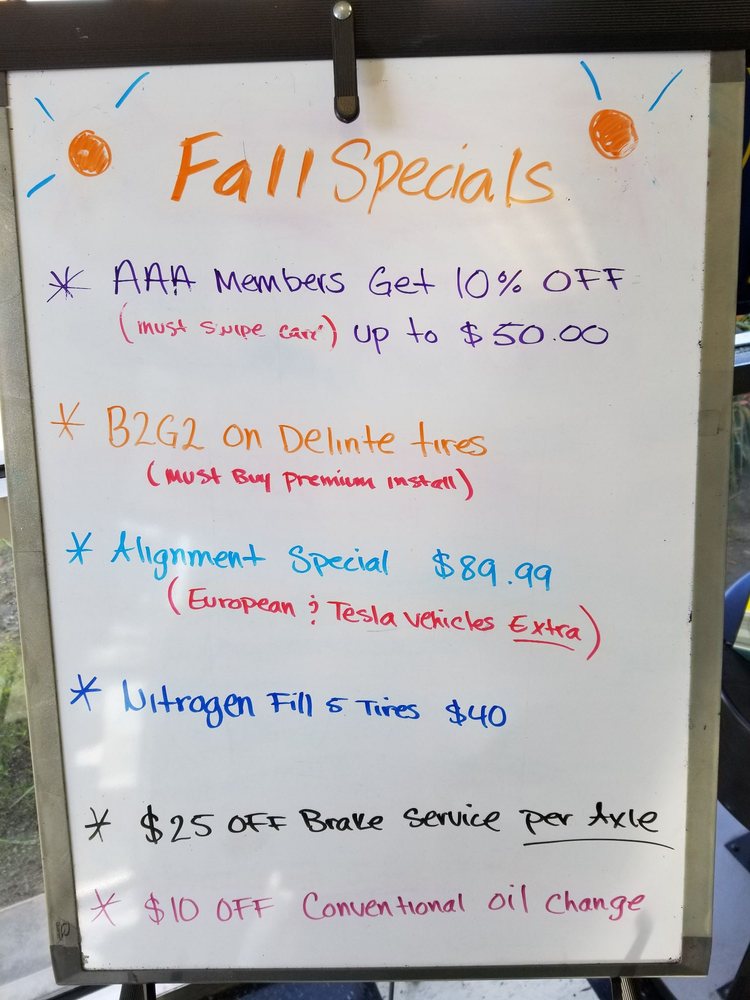 Fall Specials
* AAA Members Get 10% OFF
(must swipe card) up to $50.00
* B2G2 on Delinte tires
(Must Buy premium install)
* Alignment Special $89.99
(European & Tesla vehicles Extra)
* Nitrogen Fill 5 Tires $40
* $25 OFF Brake Service per Axle
* $10 OFF Conventional oil change